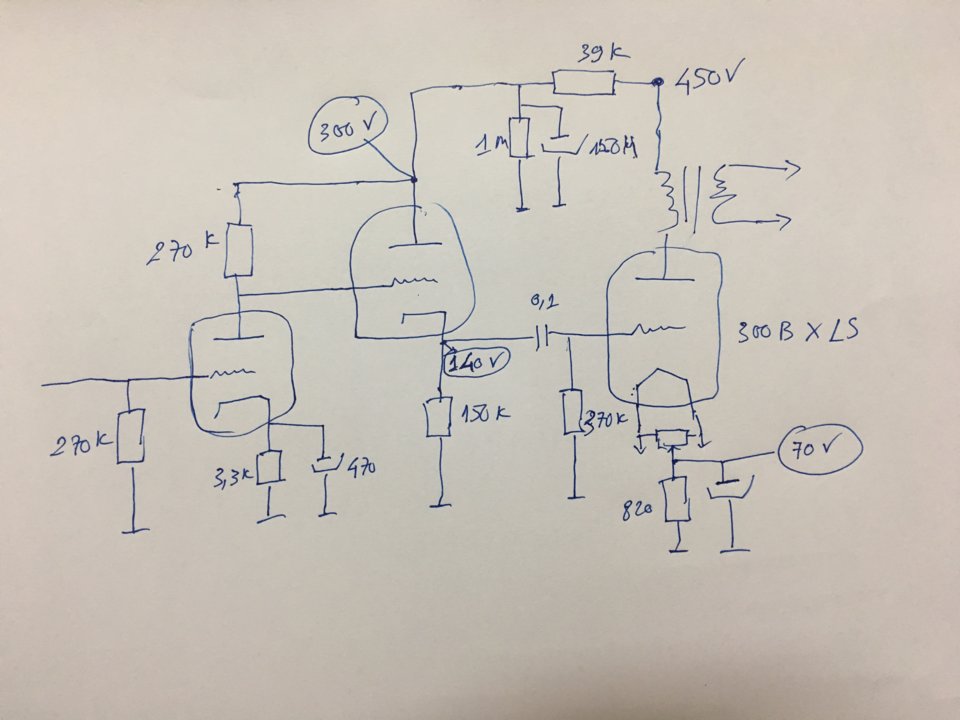 39 K
450V
300 V
1 M
150 M
270 K
0,1
300B X LS
140 V
270K
150 K
270K
3,3K
470
70V
820